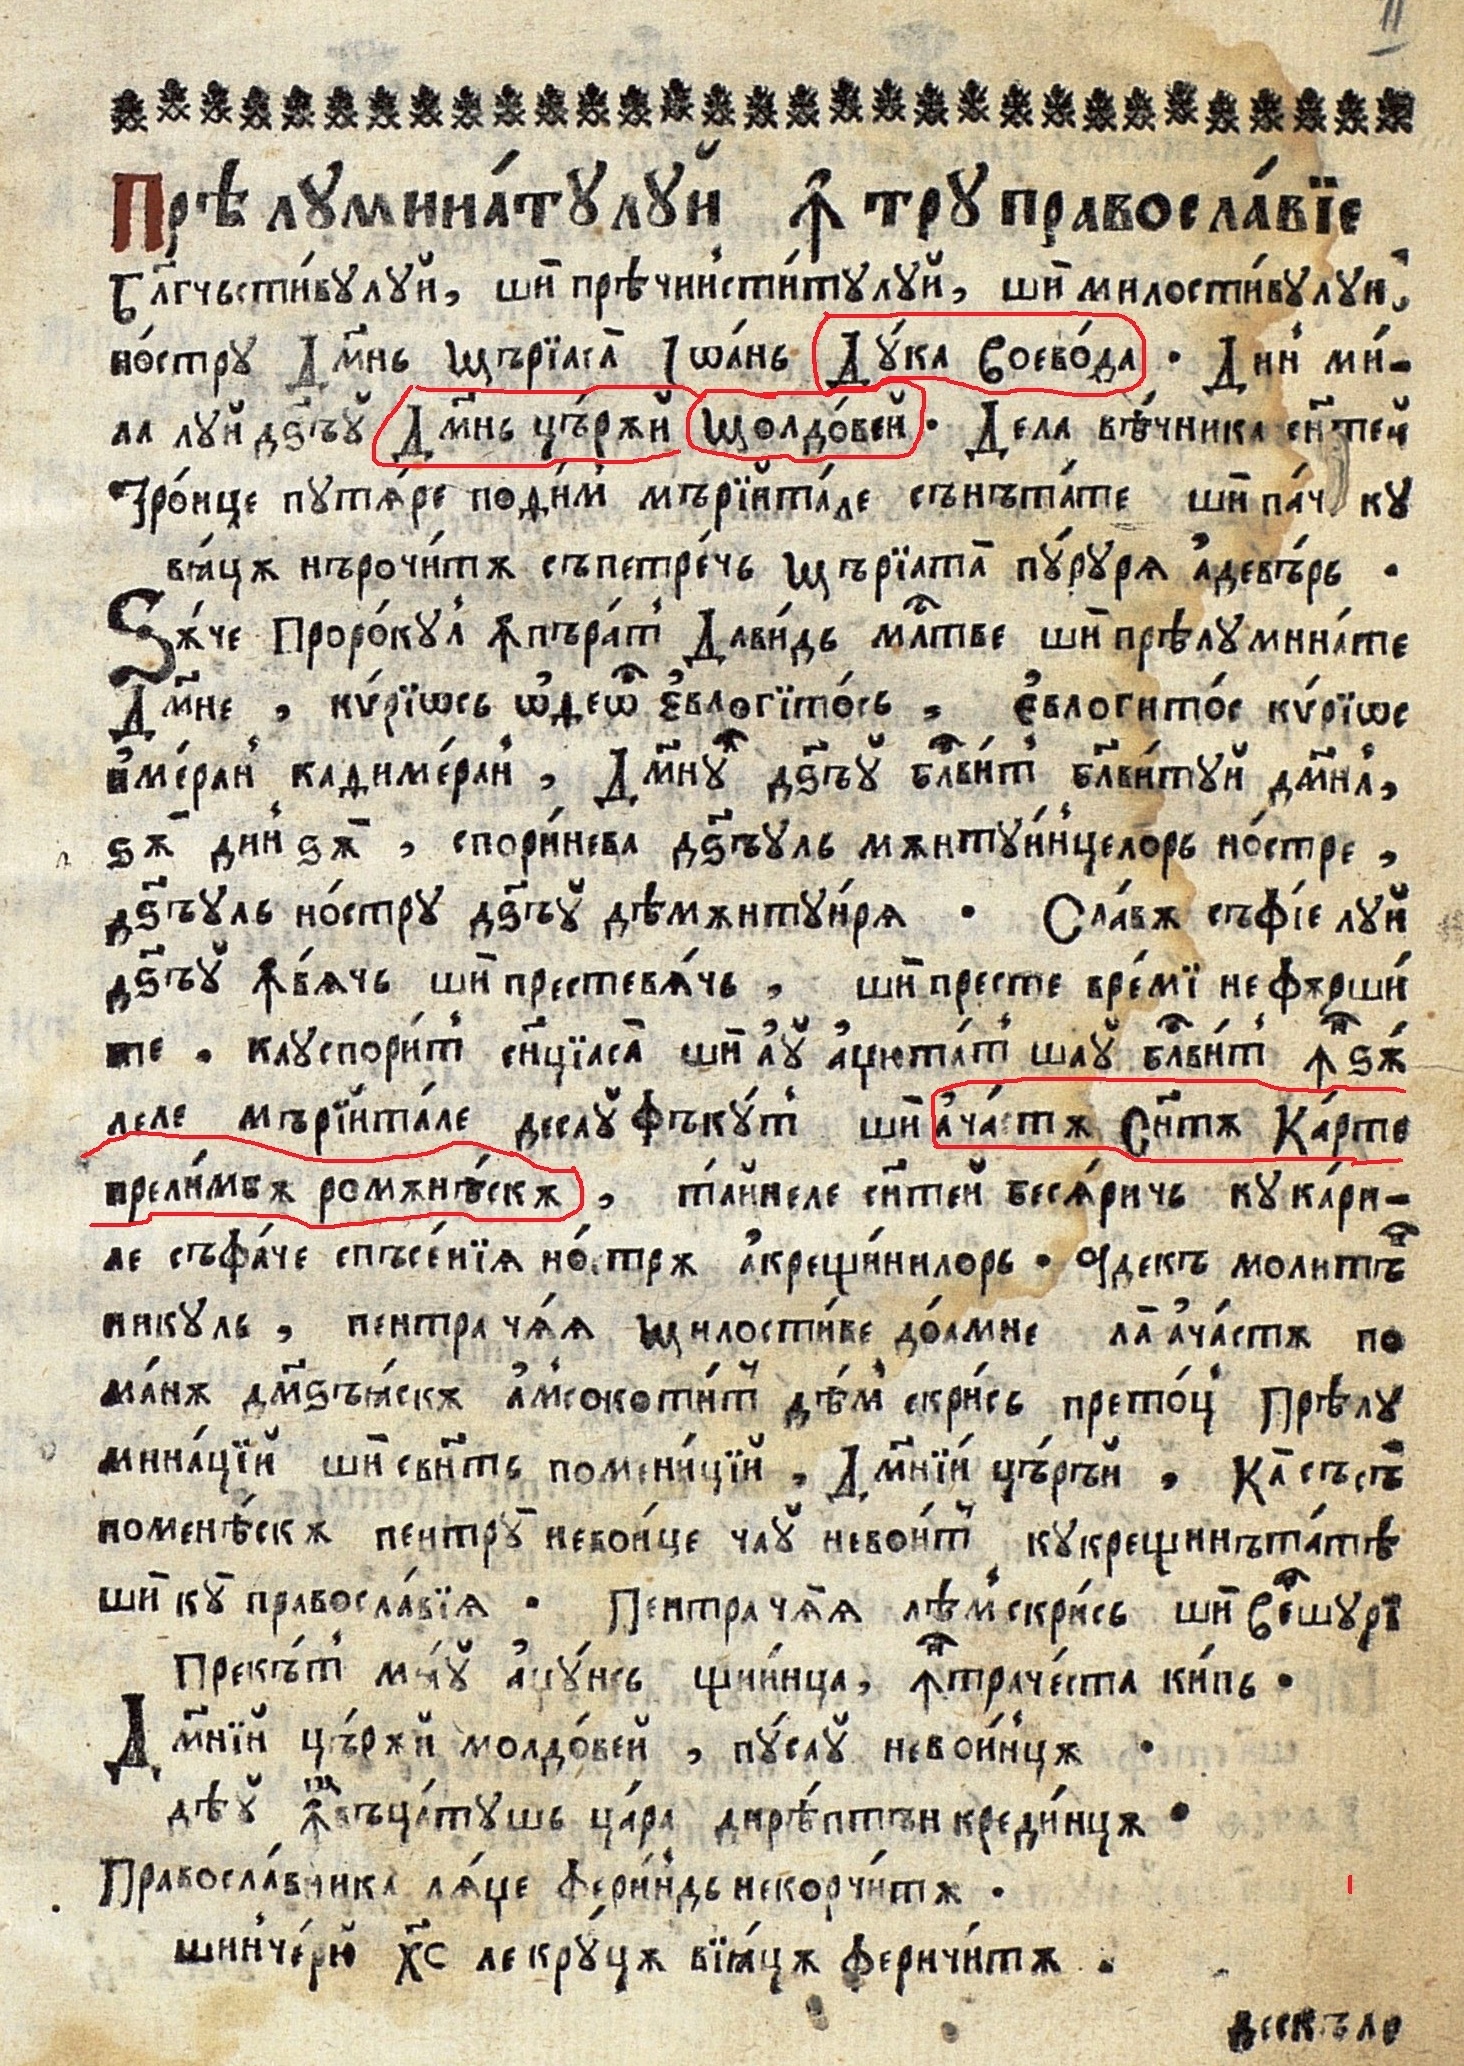 Прѣ лꙋмина́тꙋлꙋй ꙟ трꙋ правосла́вїе
Бл҃гчьсти́вꙋлꙋй, ши҆ прѣчинсти́тꙋлꙋй, ши҆ милости́вꙋлꙋй,
но́стрꙋ Дм҃нь Мърїаса̑ Іѡа́нь Дꙋ́ка Воево́да · Дин ми́-
ла лꙋй дꙋ҃мнеꙁъꙋ Дм҃нь цъ́рѫй Молдо́вей · Дела вѣ́чника
Тро́ице пꙋтѧ́ре мърїйта́ле сънъта́те ши҆ па́че кꙋ
вїа́цѫ нърочи́тѫ съпетре́чь Мърїата̑ пꙋ́рꙋрѧ а҆девъ́рь ·
Ѕѫ́че Проро́кꙋл ꙟпъра́т Дави́дь ши҆ прѣлꙋмина́те
Дм҃не, кѵ́рїѡсь є҆влогїто́сь, є҆влогито́с кѵ́рїѡс
и҆ме́ран кадиме́ран, Дм҃нꙋ дѕ҃ъꙋ бл҃ви́т бл҃ви́тꙋй дм҃нл,
ѕѫ҃ дин ѕѫ҃, спори́нева дѕ҃ъꙋль мѫнтꙋи́нцелорь но́стре,
дѕ҃ъꙋль но́стрꙋ дѕ҃ъꙋ дѣмѫнтꙋи́рѧ · Сла́вѫ съфі́е лꙋй
дѕ҃ъꙋ ꙟвѧ́чь ши҆ престевѧ́чь, ши҆ престе вре́мї нефѫрши́
те · каꙋспори́т сн҃цїаса̑ ши҆ аꙋ҆ а҆цюта́т шаꙋ бл҃ви́т ꙟ ѕѫ́
леле мърїйта́ле десаꙋ фъкꙋ́т ши҆ а҆ча́стѫ Сн҃тѫ Ка́рте
прели́мбѫ ромѫнѣ́скѫ, та́йнеле сн҃тей бесѧ́ричь кꙋка́ри-
ле съфа́че спъсе́нїѧ но́стрѫ а҆крещи́нилорь · А҆декъ молитъ
никꙋль, пентрꙋ чѧ́ѧ Милости́ве до́амне ла̑ а҆ча́стѫ по
ма́нѫ дм҃ѕъꙗ́скѫ а҆мсокоти́т дѣ́м скри́сь прето́ц Прѣлꙋ
мина́цїй ши҆ помени́цїй, Дм҃нїй цъ́рѫй, Ка̑ съсъ̑
поменѣ́скѫ пентрꙋ̑ невои́це чаꙋ невои́т кꙋкрещинъта́тѣ
ши҆ кꙋ̑ правосла́вїѧ · Пентрꙋ чѧ́ѧ лѣм скри́сь ши҆
Прекъ́т мїаꙋ а҆цꙋ́нсь щии́нца, ꙟтраче́ста ки́пь ·
Дм҃нїй цъ́рѫй молдо́вей, пꙋ́саꙋ невои́нцѫ ·
дѣꙋ ꙟвъца́тꙋшь ца́ра дирѣ́птън креди́нцѫ ·
Правосла́вника лѧ́це фери́ндь некорчи́тѫ ·
шинче́рю х҃с ле крꙋ́цѫ вїа́цѫ феричи́тѫ ·